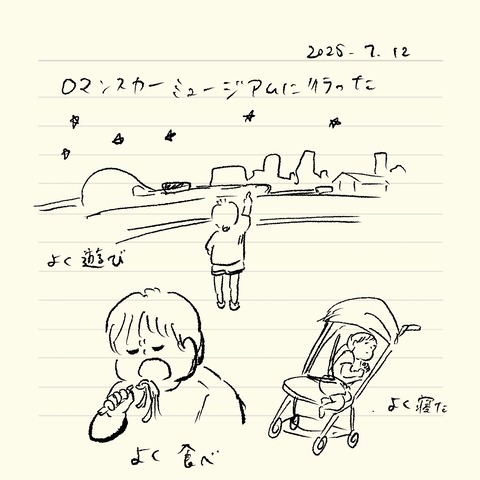 2025-7.12
ロマンスカーミュージアムに行った
よく遊び
よく食べ
よく寝た